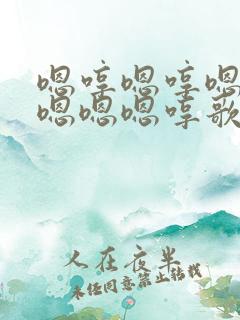 嗯哼嗯哼嗯
嗯嗯嗯哼歌
人在夜半
未经同意禁止转载